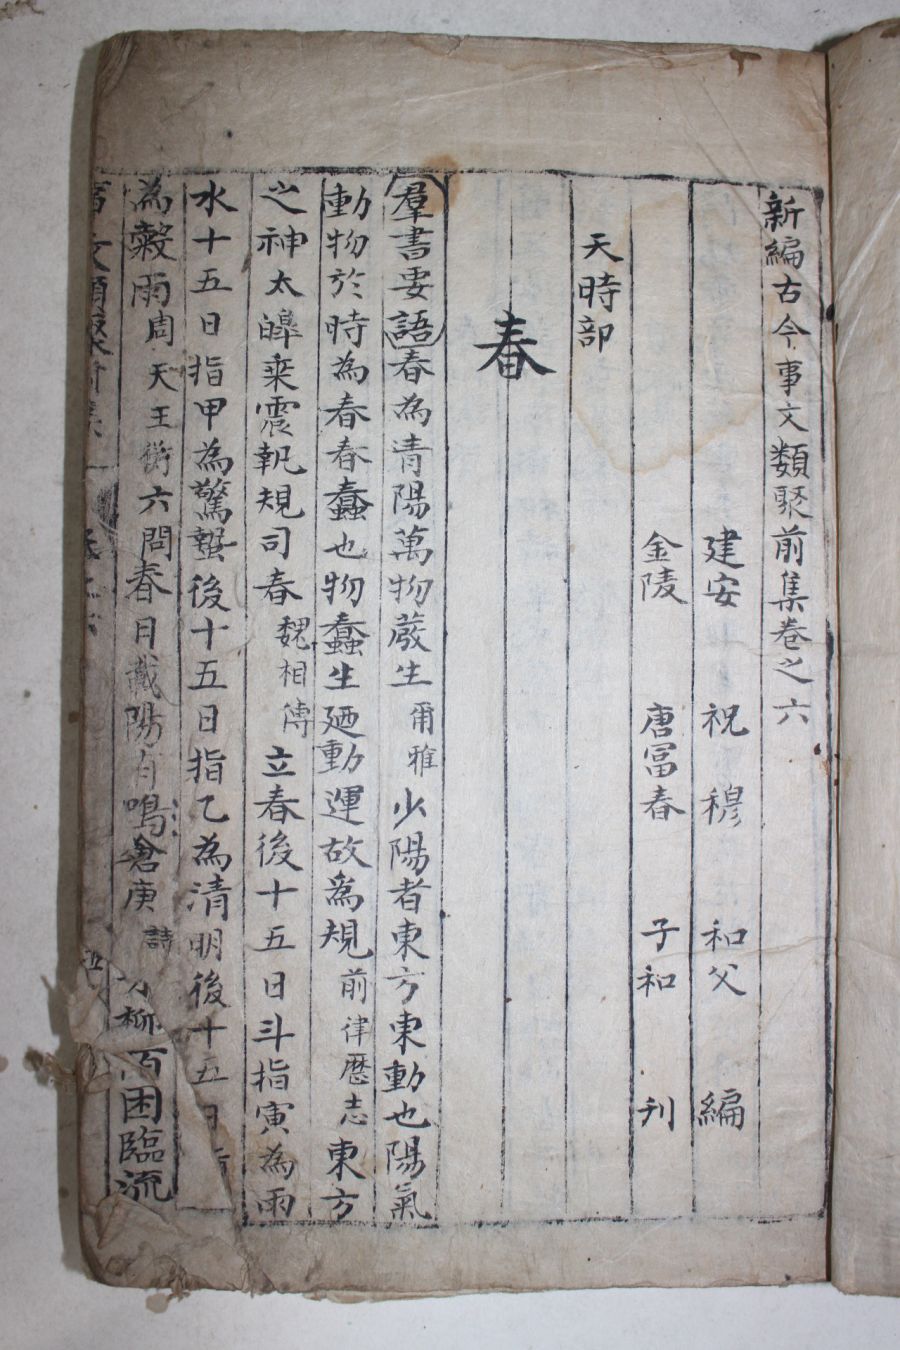 新編古今事文類聚前集卷之六
建安 祝 穆 和父 編
金陵 唐冨春 子和 刋
天時部
春
羣書要語春為清陽萬物蕟生爾雅少陽者東方東動也陽氣
動物於時為春春蠢也物蠢生廼動運故為規前律歷志東方
之神太皥乘震執規司春魏相傳立春後十五日斗指寅為雨
水十五日指甲為驚蟄後十五日指乙為清明後十五日指
為糓雨周天王衡六問春日載陽有鳴倉庚詩 柳 困臨流